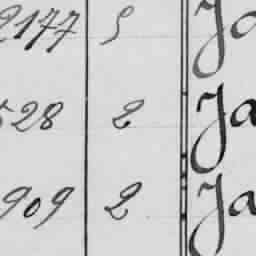 2177 5 Ja
528 2 Ja
909 2 Ja